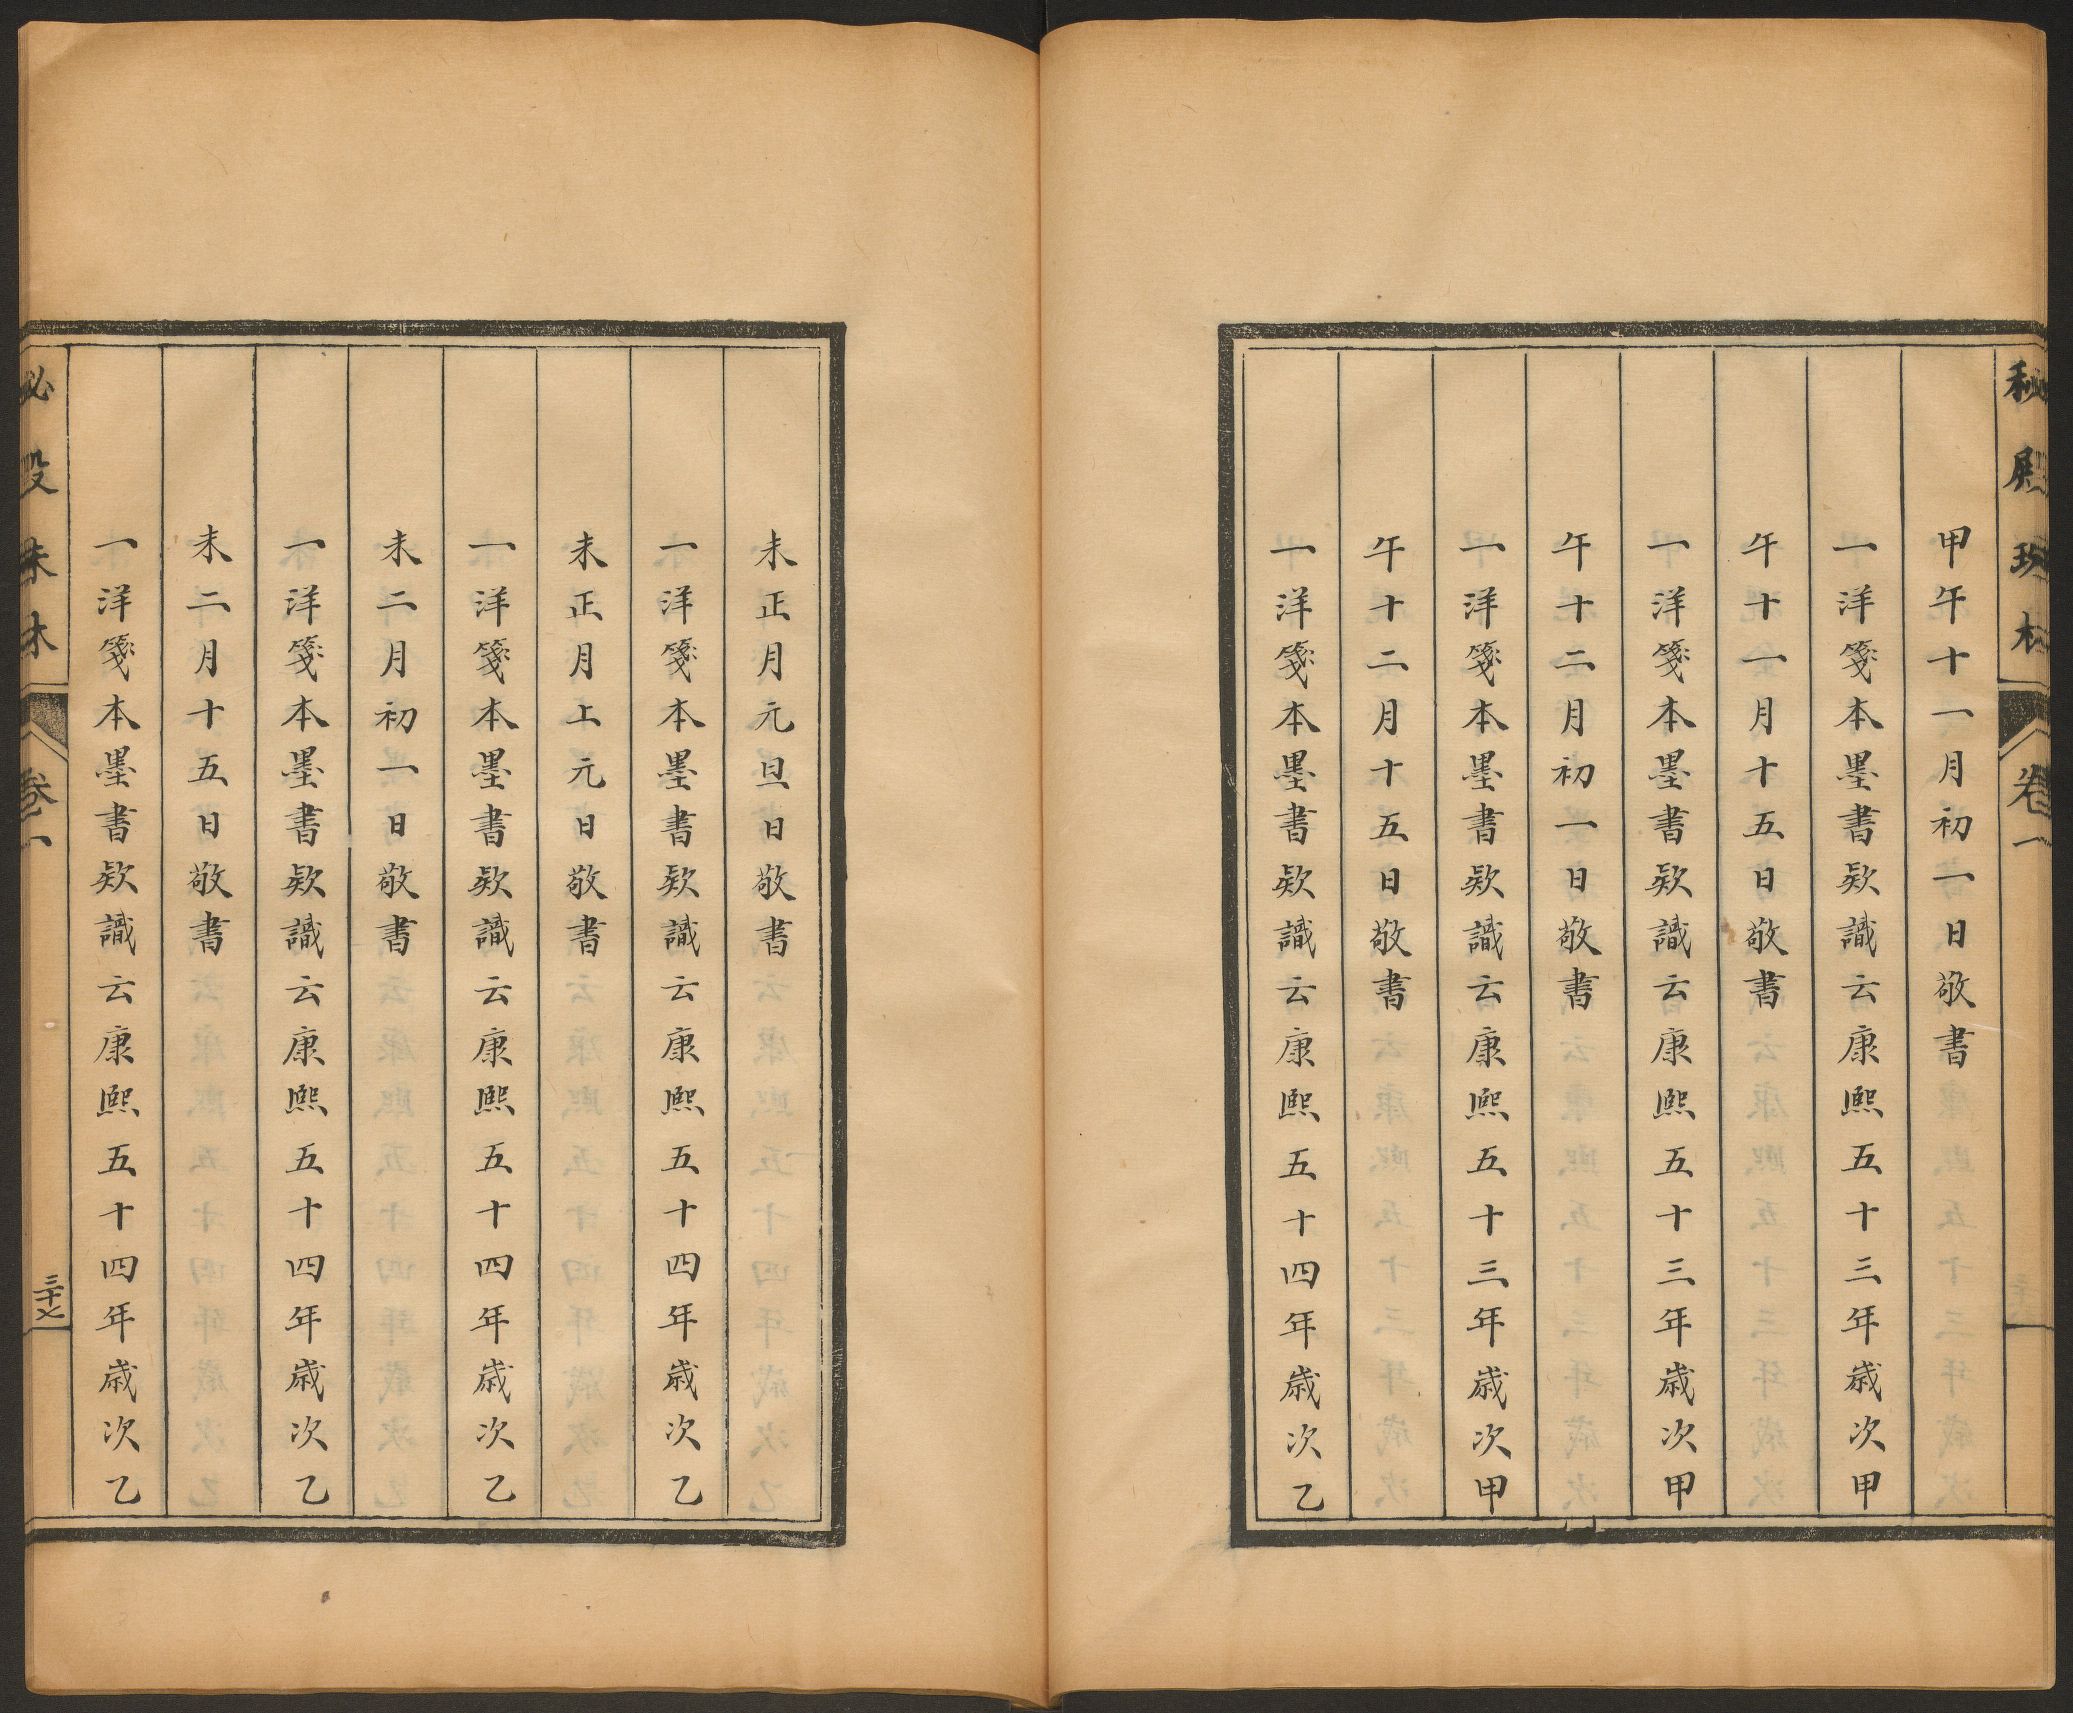 秘殿珠林
卷一
甲午十一月初一日敬書
一洋箋本墨書欵識云康熙五十三年歲次甲
午十一月十五日敬書
一洋箋本墨書欵識云康熙五十三年歲次甲
午十二月初一日敬書
一洋箋本墨書欵識云康熙五十三年歲次甲
午十二月十五日敬書
一洋箋本墨書欵識云康熙五十四年歲次乙
未正月元旦日敬書
一洋箋本墨書欵識云康熙五十四年歲次乙
未正月上元日敬書
一洋箋本墨書欵識云康熙五十四年歲次乙
未二月初一日敬書
一洋箋本墨書欵識云康熙五十四年歲次乙
未二月十五日敬書
一洋箋本墨書欵識云康熙五十四年歲次乙
秘殿珠林
卷一
三十七